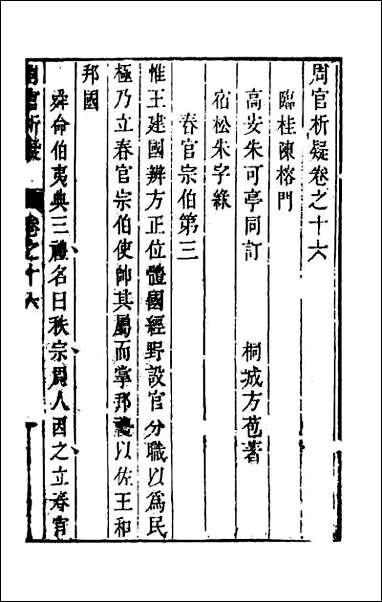 周官析疑卷之十六
臨桂陳榕門
高安朱可亭同訂 桐城方苞著
宿松朱字綠
春官宗伯第三
惟王建國辨方正位體國經野設官分職以為民
極乃立春官宗伯使帥其屬而掌邦禮以佐王和
邦國
舜命伯夷典三禮名曰秩宗周人因之立春官
周官析疑 卷之十六